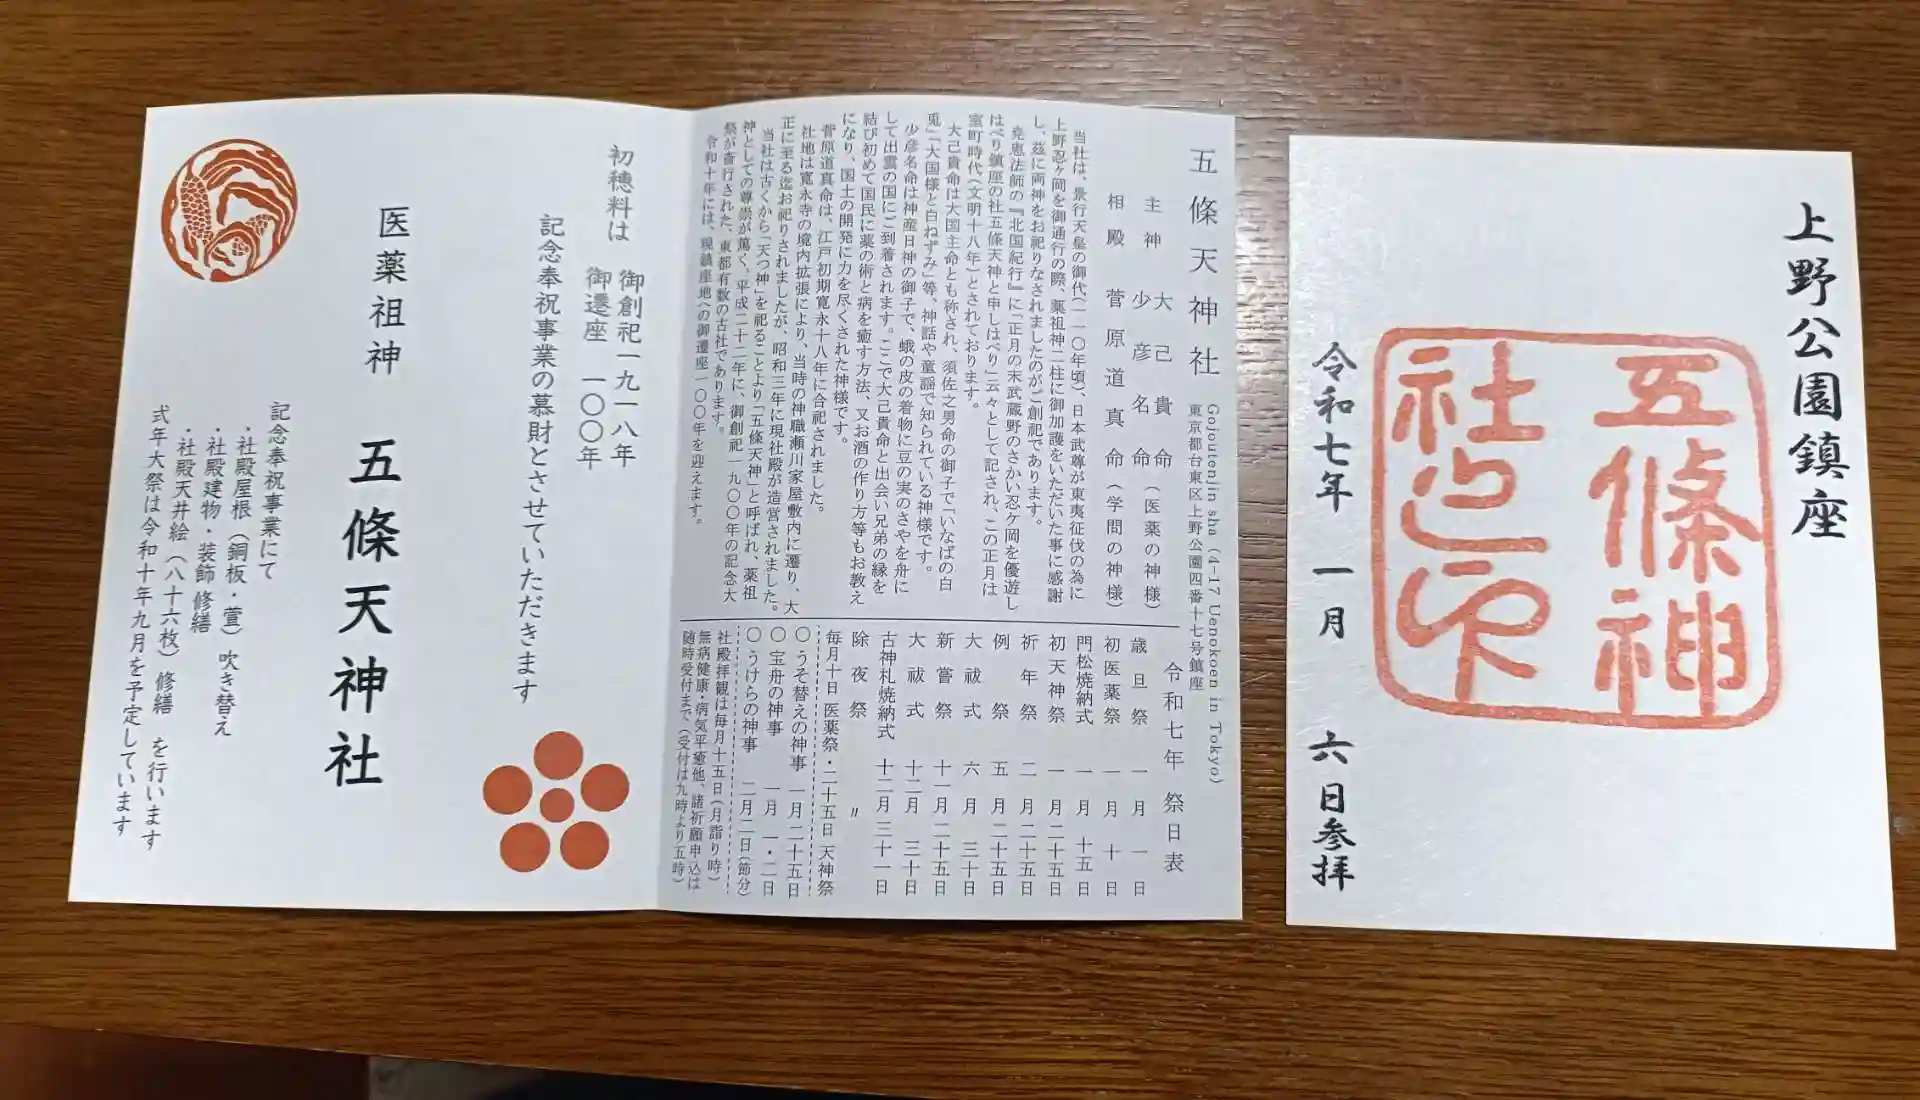 上野公園鎮座
五條神
社之印
令和七年 一月 六日参拝
五條天神社
Gojoutenjin sha (4-17 Uenokoen in Tokyo)
東京都台東区上野公園四番十七号鎮座
主神 大己貴命
少彦名命(医薬の神様)
相殿 菅原道真命(学問の神様)
当社は、景行天皇の御代(一一〇年頃)、日本武尊が東夷征伐の為に
上野忍ヶ岡を御通行の際、薬祖神二柱に御加護をいただいた事に感謝
し、茲に両神をお祀りなされましたのがご創祀であります。
尭恵法師の『北国紀行』に「正月の末武蔵野のさかい忍ケ岡を優遊し
はべり鎮座の社五條天神と申しはべり」云々として記され、この正月は
室町時代(文明十八年)とされております。
大己貴命は大国主命とも称され、須佐之男命の御子で「いなばの白
兎」「大国様と白ねずみ」等、神話や童謡で知られている神様です。
少彦名命は神産日神の御子で、蛾の皮の着物に豆の実のさやを舟に
して出雲の国にご到着されます。ここで大己貴命と出会い兄弟の縁を
結び初めて国民に薬の術と病を癒す方法、又お酒の作り方等もお教え
になり、国土の開発に力を尽くされた神様です。
菅原道真命は、江戸初期寛永十八年に合祀されました。
社地は寛永寺の境内拡張により、当時の神職瀬川家屋敷内に遷り、大
正に至る迄お祀りされましたが、昭和三年に現社殿が造営されました。
当社は古くから「天つ神」を祀ることより「五條天神」と呼ばれ、薬祖
神としての尊崇が篤く、平成二十二年に、御創祀一九〇〇年の記念大
祭が斎行された、東都有数の古社であります。
令和十年には、現鎮座地への御遷座一〇〇年を迎えます。
令和七年 祭日表
歳旦祭 一月 一日
初医薬祭 一月 十日
門松焼納式 一月 十五日
初天神祭 一月二十五日
祈年祭 二月二十五日
例祭 五月二十五日
大祓式 六月 三十日
新嘗祭 十一月二十五日
大祓式 十二月 三十日
古神札焼納式 十二月三十一日
除夜祭 〃
毎月十日 医薬祭・二十五日 天神祭
〇うそ替えの神事 一月二十五日
〇宝舟の神事 一月 一・二日
〇うけらの神事 二月二日(節分)
社殿拝観は毎月十五日(月詣り時)
無病健康・病気平癒他、諸祈願申込は
随時受付まで(受付は九時より五時)
初穂料は 御創祀一九一八年
御遷座 一〇〇年
記念奉祝事業の募財とさせていただきます
医薬祖神 五條天神社
記念奉祝事業にて
・社殿屋根(銅板・萱) 吹き替え
・社殿建物・装飾 修繕
・社殿天井絵(八十六枚) 修繕 を行います
式年大祭は令和十年九月を予定しています